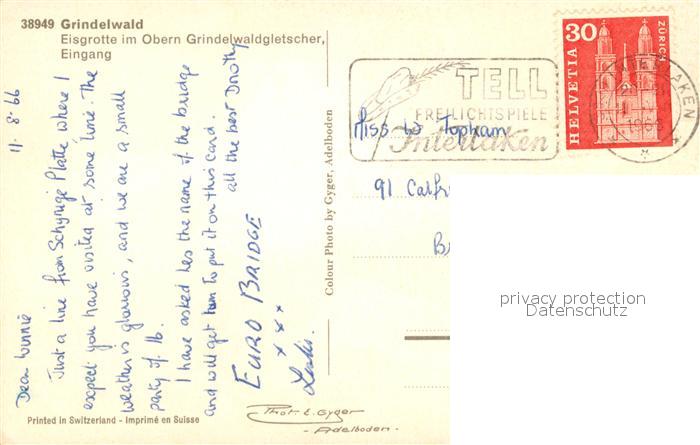 38949 Grindelwald
Eisgrotte im Obern Grindelwaldgletscher,
Eingang
11. 8. 66
Dear Winnie
Just a line from Schynige Platte where I
expect you have visited at some time. The
weather is glorious, and we are a small
party of 16.
I have asked Les the name of the bridge
and will get him to put it on this card.
all the best Dorothy
EURO BRIDGE
x x x
Leslie.
Printed in Switzerland - Imprimé en Suisse
Phot. E. Gyger
- Adelboden -
Colour Photo by Gyger, Adelboden
TELL
FREILICHTSPIELE
Interlaken
HELVETIA
30
ZÜRICH
INTERLAKEN
Miss W Topham
91
privacy protection
Datenschutz